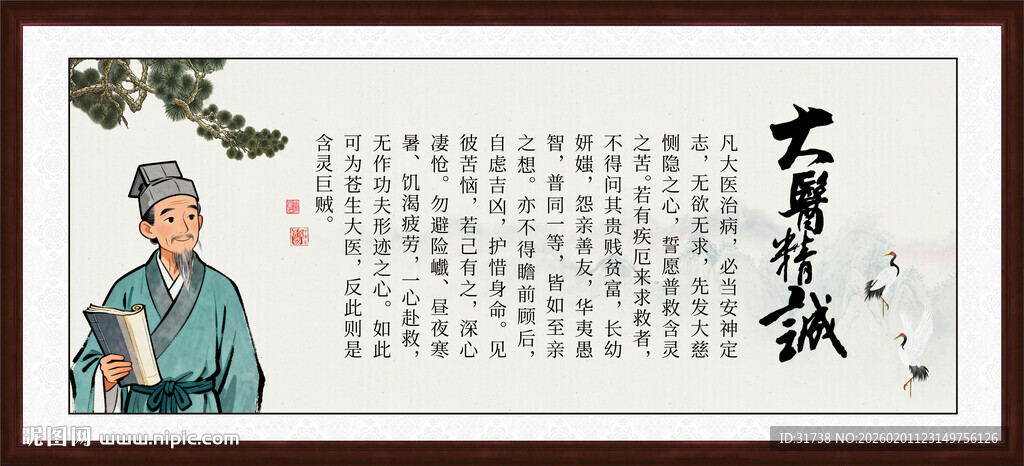 大醫精誠
凡大医治病，必当安神定
志，无欲无求，先发大慈
恻隐之心，誓愿普救含灵
之苦。若有疾厄来求救者，
不得问其贵贱贫富，长幼
妍媸，怨亲善友，华夷愚
智，普同一等，皆如至亲
之想。亦不得瞻前顾后，
自虑吉凶，护惜身命。见
彼苦恼，若己有之，深心
凄怆。勿避险巇、昼夜寒
暑、饥渴疲劳，一心赴救，
无作功夫形迹之心。如此
可为苍生大医，反此则是
含灵巨贼。
昵图网 www.nipic.com
ID:31738 NO:20260201123149756126